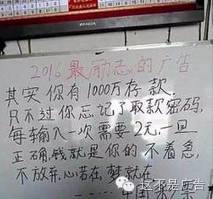 2016最励志的广告
其实你有1000万存款,
只不过你忘记了取款密码,
每输入一次需要2元,一旦
正确,钱就是你的 不着急,
不放弃,心若在,梦就在
中国彩票
这不是广告